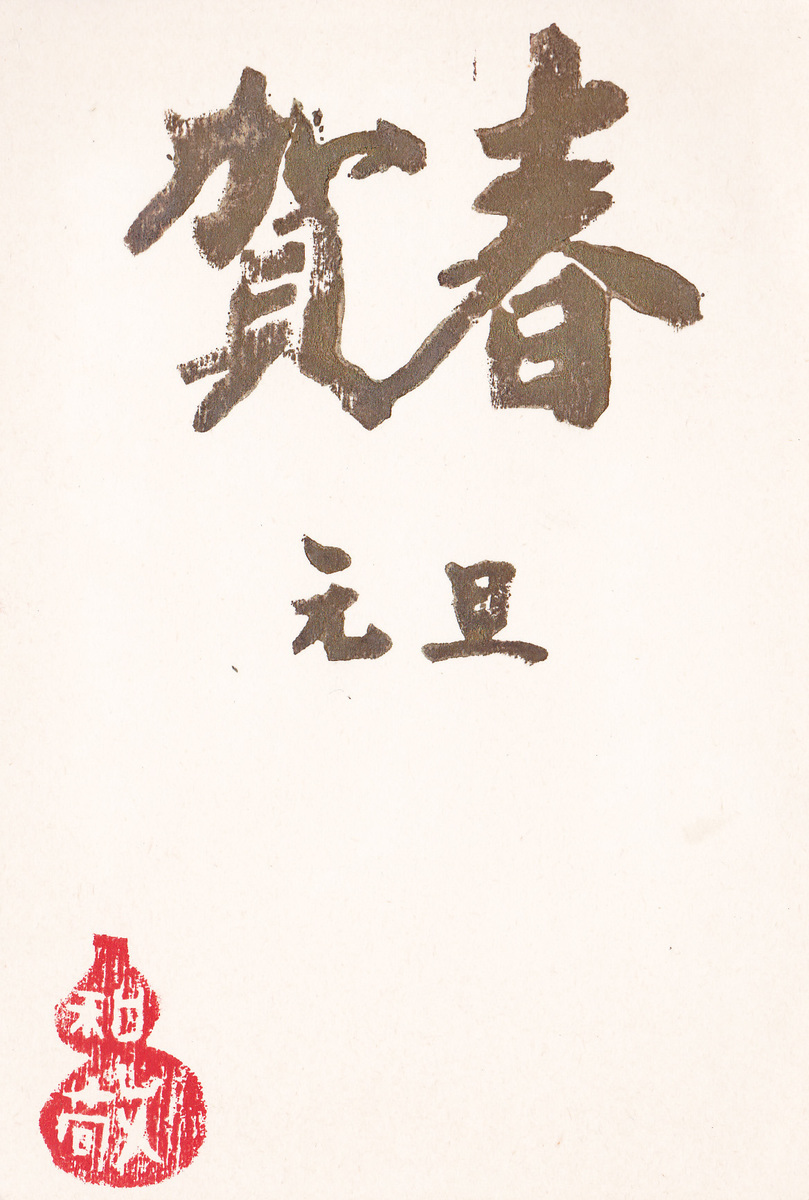 賀春
元旦
和
敬